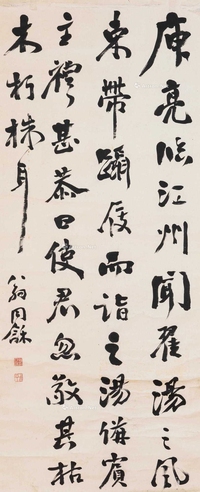 庾亮臨江州聞翟湯之風
束帶躡履而詣之湯備賓
主禮甚恭曰使君忽敬其枯
木朽株耳
翁同龢